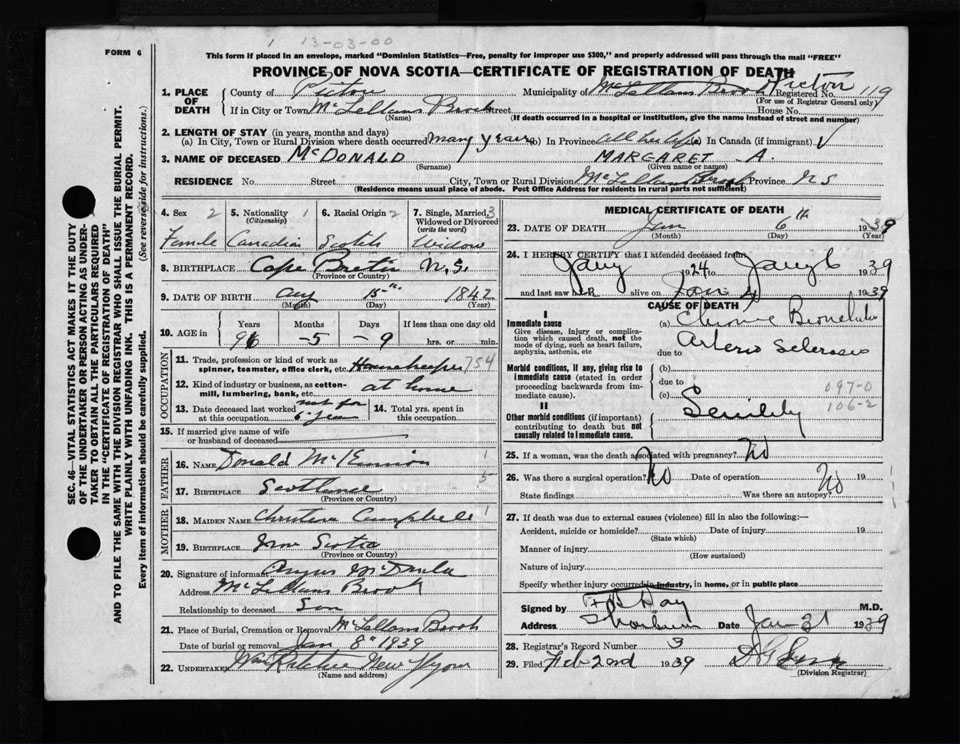 1 13-03-00
FORM 6
This form if placed in an envelope, marked "Dominion Statistics—Free, penalty for improper use $300," and properly addressed will pass through the mail "FREE"
PROVINCE OF NOVA SCOTIA—CERTIFICATE OF REGISTRATION OF DEATH
SEC. 46—VITAL STATISTICS ACT MAKES IT THE DUTY
OF THE UNDERTAKER OR PERSON ACTING AS UNDER-
TAKER TO OBTAIN ALL THE PARTICULARS REQUIRED
IN THE "CERTIFICATE OF REGISTRATION OF DEATH"
AND TO FILE THE SAME WITH THE DIVISION REGISTRAR WHO SHALL ISSUE THE BURIAL PERMIT.
WRITE PLAINLY WITH UNFADING INK. THIS IS A PERMANENT RECORD.
Every item of information should be carefully supplied. (See reverse side for instructions.)
1. PLACE OF DEATH
County of Pictou Municipality of McLellans Brook Pictou Registered No. 119
(For use of Registrar General only)
If in City or Town McLellans Brook Street House No.
(Name) (If death occurred in a hospital or institution, give the name instead of street and number)
2. LENGTH OF STAY (in years, months and days)
(a) In City, Town or Rural Division where death occurred many years (b) In Province all her life (c) In Canada (if immigrant) √
3. NAME OF DECEASED McDONALD MARGARET A.
(Surname) (Given name or names)
RESIDENCE No. Street City, Town or Rural Division McLellans Brook Province NS
(Residence means usual place of abode. Post Office Address for residents in rural parts not sufficient)
4. Sex 2
Female
5. Nationality 1
(Citizenship)
Canadian
6. Racial Origin 2
Scotch
7. Single, Married, 3
Widowed or Divorced
(write the word)
Widow
8. BIRTHPLACE Cape Breton N.S.
(Province or Country)
9. DATE OF BIRTH Aug 15th 1842
(Month) (Day) (Year)
10. AGE in
Years Months Days If less than one day
96 -5 -9 hrs. or min.
OCCUPATION
11. Trade, profession or kind of work as
spinner, teamster, office clerk, etc. Housekeeper 754
12. Kind of industry or business, as cotton-
mill, lumbering, bank, etc. at home
13. Date deceased last worked
at this occupation not for 6 years
14. Total yrs. spent in
this occupation
15. If married give name of wife
or husband of deceased
FATHER
16. NAME Donald 1
17. BIRTHPLACE Scotland 5
MOTHER
18. MAIDEN NAME Christena Campbell 1
19. BIRTHPLACE Nova Scotia
(Province or Country)
20. Signature of informant Angus McDonald
Address McLellans Brook
Relationship to deceased Son
21. Place of Burial, Cremation or Removal McLellans Brook
Date of burial or removal Jan 8th 1939
22. UNDERTAKER Ritchie New
(Name and address)
MEDICAL CERTIFICATE OF DEATH
23. DATE OF DEATH Jan 6th 1939
(Month) (Day) (Year)
24. I HEREBY CERTIFY that I attended deceased from
Jany 1924 to Jany 6 1939
and last saw her alive on Jan 4 1939
CAUSE OF DEATH
I
Immediate cause
Give disease, injury or complica-
tion which caused death, not the
mode of dying, such as heart failure,
asphyxia, asthenia, etc
(a) Chronic Bronchitis
Arterio Sclerosis
due to
Morbid conditions, if any, giving rise to
immediate cause (stated in order
proceeding backwards from im-
mediate cause).
(b)
due to 097-0
(c) 106-2
Senility
II
Other morbid conditions (if important)
contributing to death but not
causally related to immediate cause.
25. If a woman, was the death associated with pregnancy? No
26. Was there a surgical operation? No Date of operation 19
State findings Was there an autopsy? No
27. If death was due to external causes (violence) fill in also the following:—
Accident, suicide or homicide? Date of injury 19
(State which)
Manner of injury
(How sustained)
Nature of injury
Specify whether injury occurred in industry, in home, or in public place
Signed by Day M.D.
Address Thorburn Date Jan 21 1939
28. Registrar's Record Number 3
29. Filed Feb 2nd 1939
(Division Registrar)